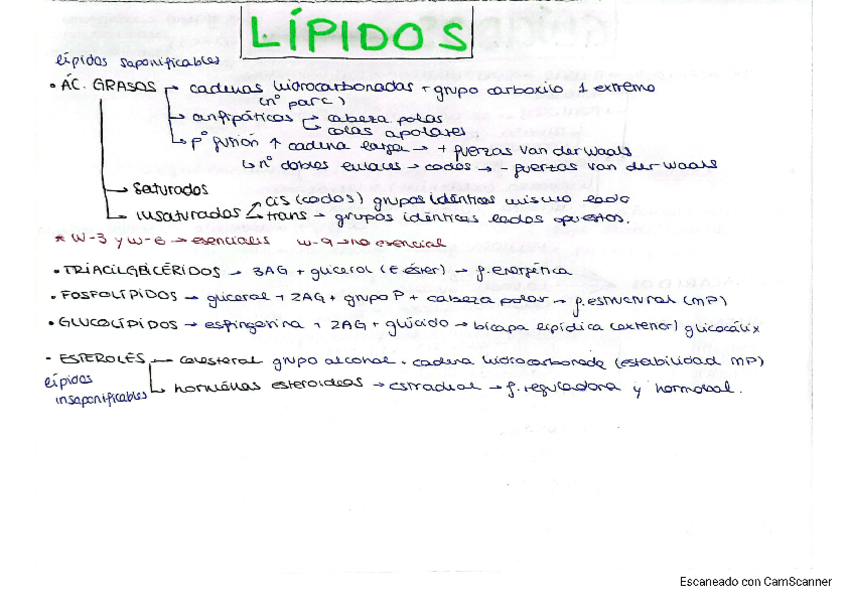 LÍPIDOS
lípidos saponificables
• ÁC. GRASOS → cadenas hidrocarbonadas + grupo carboxilo 1 extremo
(nº par C)
→ anfipáticos → cabeza polar
→ colas apolares.
→ pº fusión ↑ cadena larga → + fuerzas van der waals
↳ nº dobles enlaces → codos → - fuerzas van der waals
→ Saturados
→ insaturados → cis (codos) grupos idénticos mismo lado
→ trans → grupos idénticos lados opuestos.
* W-3 y w-6 → esenciales w-9 → no esencial
• TRIACILGLICÉRIDOS → 3AG + glicerol (E. éster) → f. energética
• FOSFOLÍPIDOS → glicerol + 2AG + grupo P + cabeza polar → f. estructural (MP)
• GLUCOLÍPIDOS → esfingosina + 2AG + glúcido → bicapa lipídica (exterior) glicocálix
- ESTEROLES → colesterol grupo alcohol + cadena hidrocarbonada (estabilidad MP)
lípidos insaponificables
↳ hormonas esteroideas → estradiol → f. reguladora y hormonal.
Escaneado con CamScanner